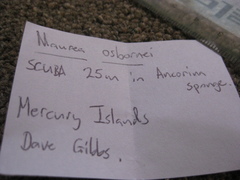 Maurea osbornei
SCUBA 25m in Ancorina
sponge.
Mercury Islands
Dave Gibbs.